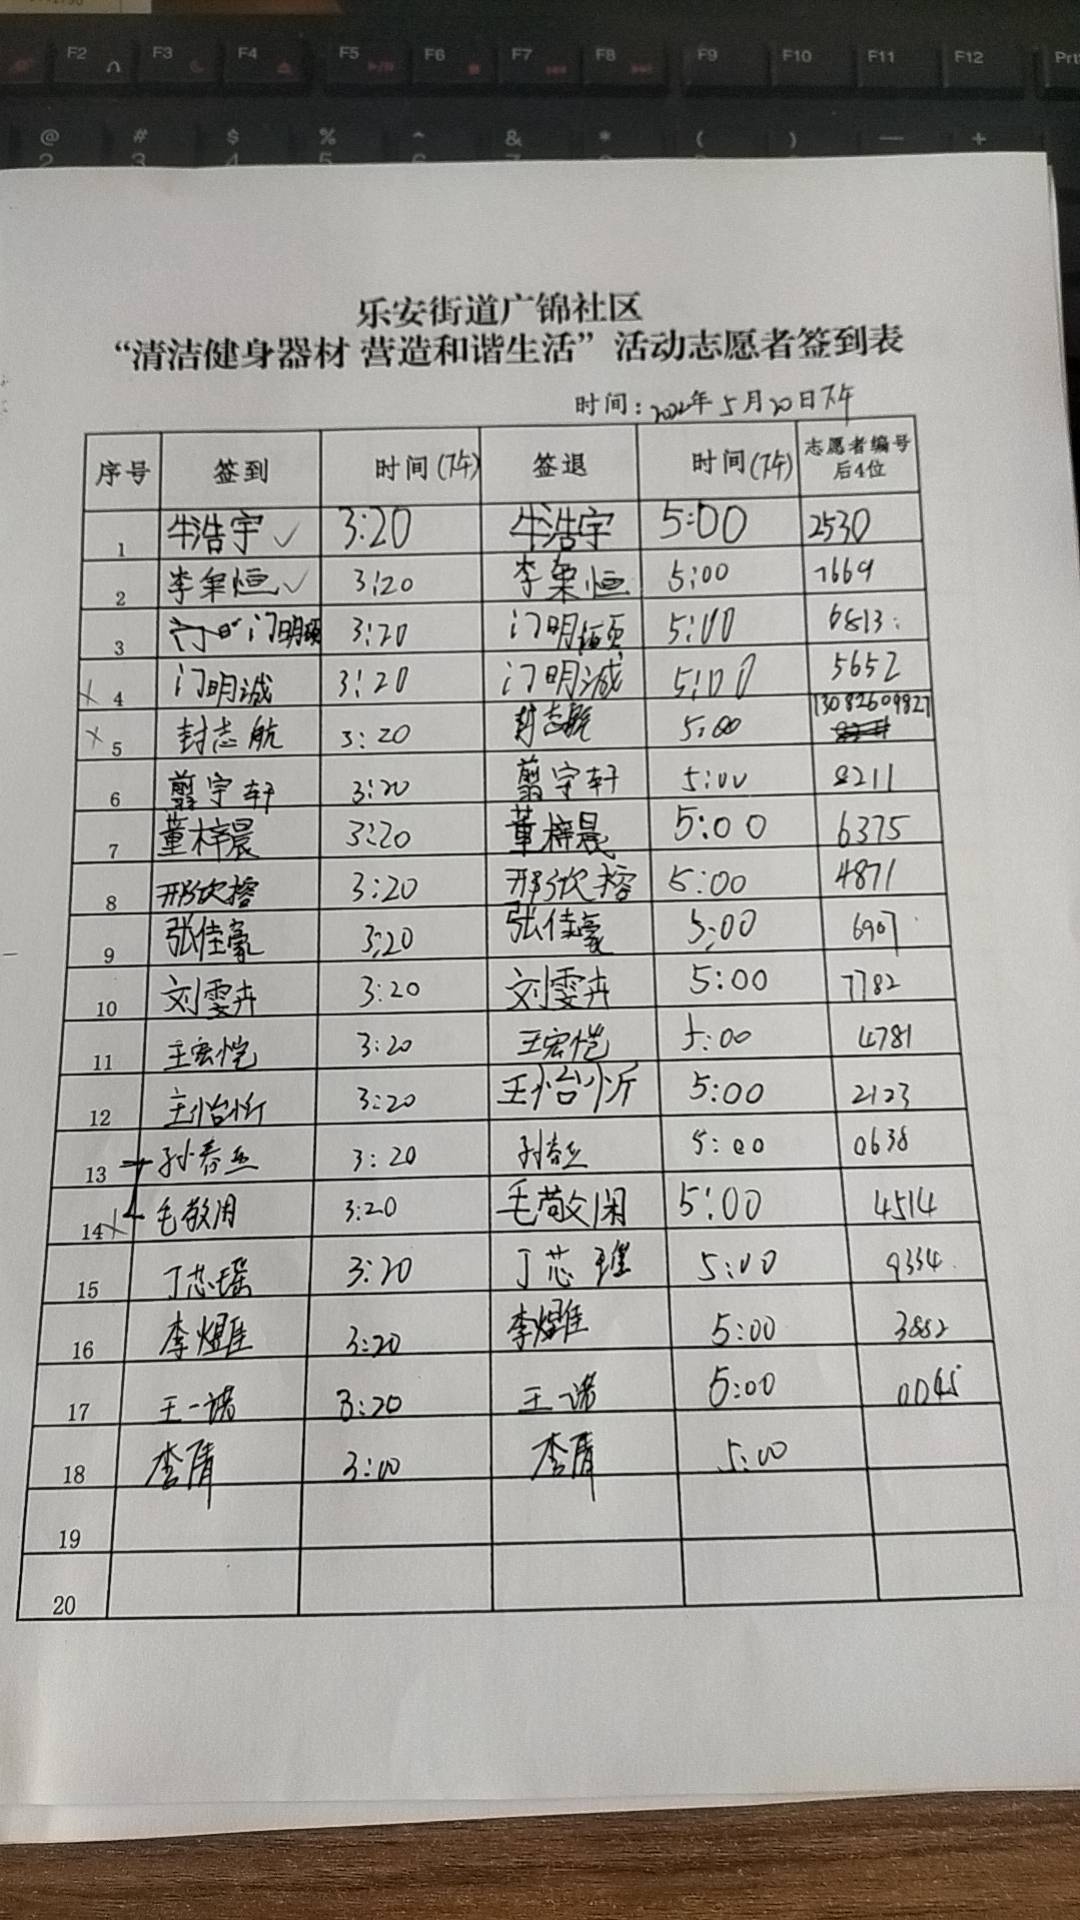 F2 F3 F4 F5 F6 F7 F8 F9 F10 F11 F12 Prt
@ # $ % ^ & * ( ) — +
乐安街道广锦社区
“清洁健身器材 营造和谐生活”活动志愿者签到表
时间：2022年5月20日下午
序号 签到 时间(下午) 签退 时间(下午) 志愿者编号后4位
1 牛浩宇✓ 3:20 牛浩宇 5:00 2530
2 李秉恒✓ 3:20 李秉恒 5:00 7669
3 门明硕 3:20 门明硕 5:00 6813
4 门明诚 3:20 门明诚 5:00 5652
5 封志航 3:20 封志航 5:00 13082609827
6 翦宇轩 3:20 翦宇轩 5:00 8211
7 董梓晨 3:20 董梓晨 5:00 6375
8 邢欣榕 3:20 邢欣榕 5:00 4871
9 张佳豪 3:20 张佳豪 5:00 6907
10 刘雯卉 3:20 刘雯卉 5:00 7782
11 王宏恺 3:20 王宏恺 5:00 4781
12 王怡忻 3:20 王怡忻 5:00 2123
13 孙春 3:20 孙春 5:00 0638
14 毛敬闲 3:20 毛敬闲 5:00 4514
15 丁芯瑶 3:20 丁芯瑶 5:00 9334
16 李煜雅 3:20 李煜雅 5:00 3882
17 王一诺 3:20 王一诺 5:00 0045
18 李倩 3:00 李倩 5:00
19
20